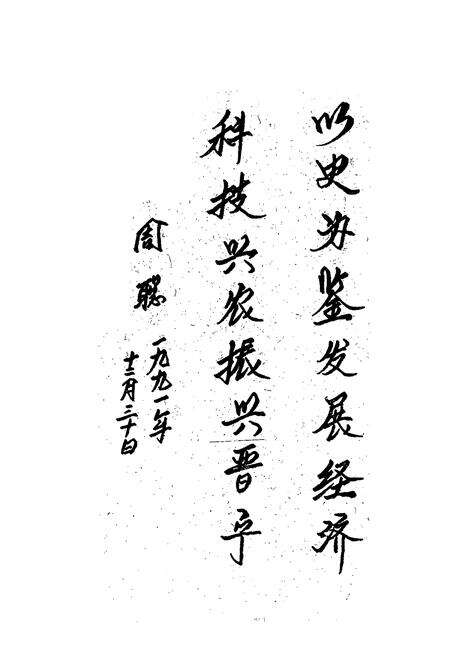 以史为鉴发展经济
科技兴农振兴晋宁
周聪
一九九一年
十二月三十日